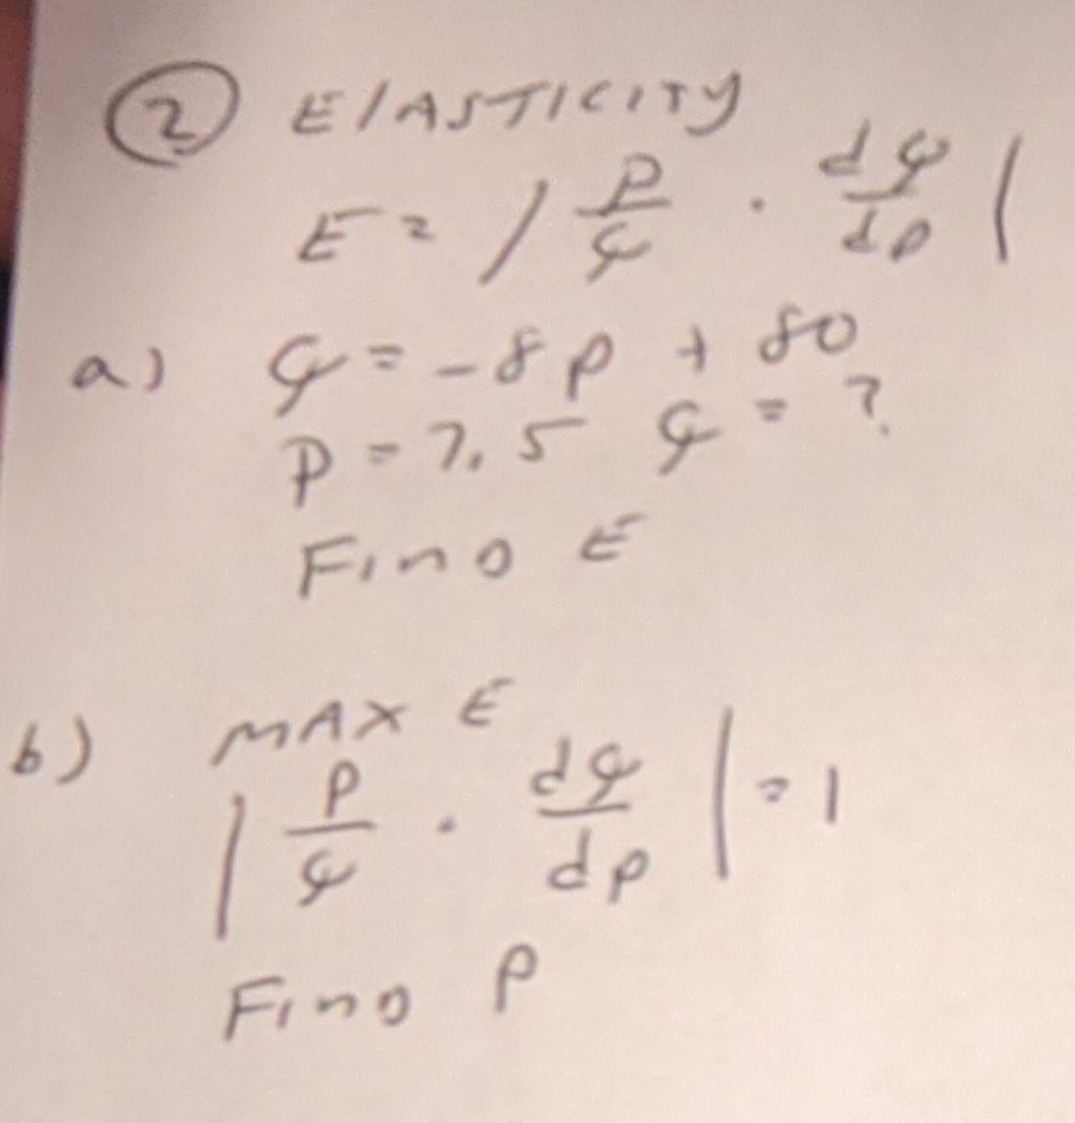 ② ELASTICITY
E = | p/q · dq/dp |
a) q = -8p + 80
p = 7.5 q = ?
FIND E
b) MAX E
| p/q · dq/dp | = 1
FIND P